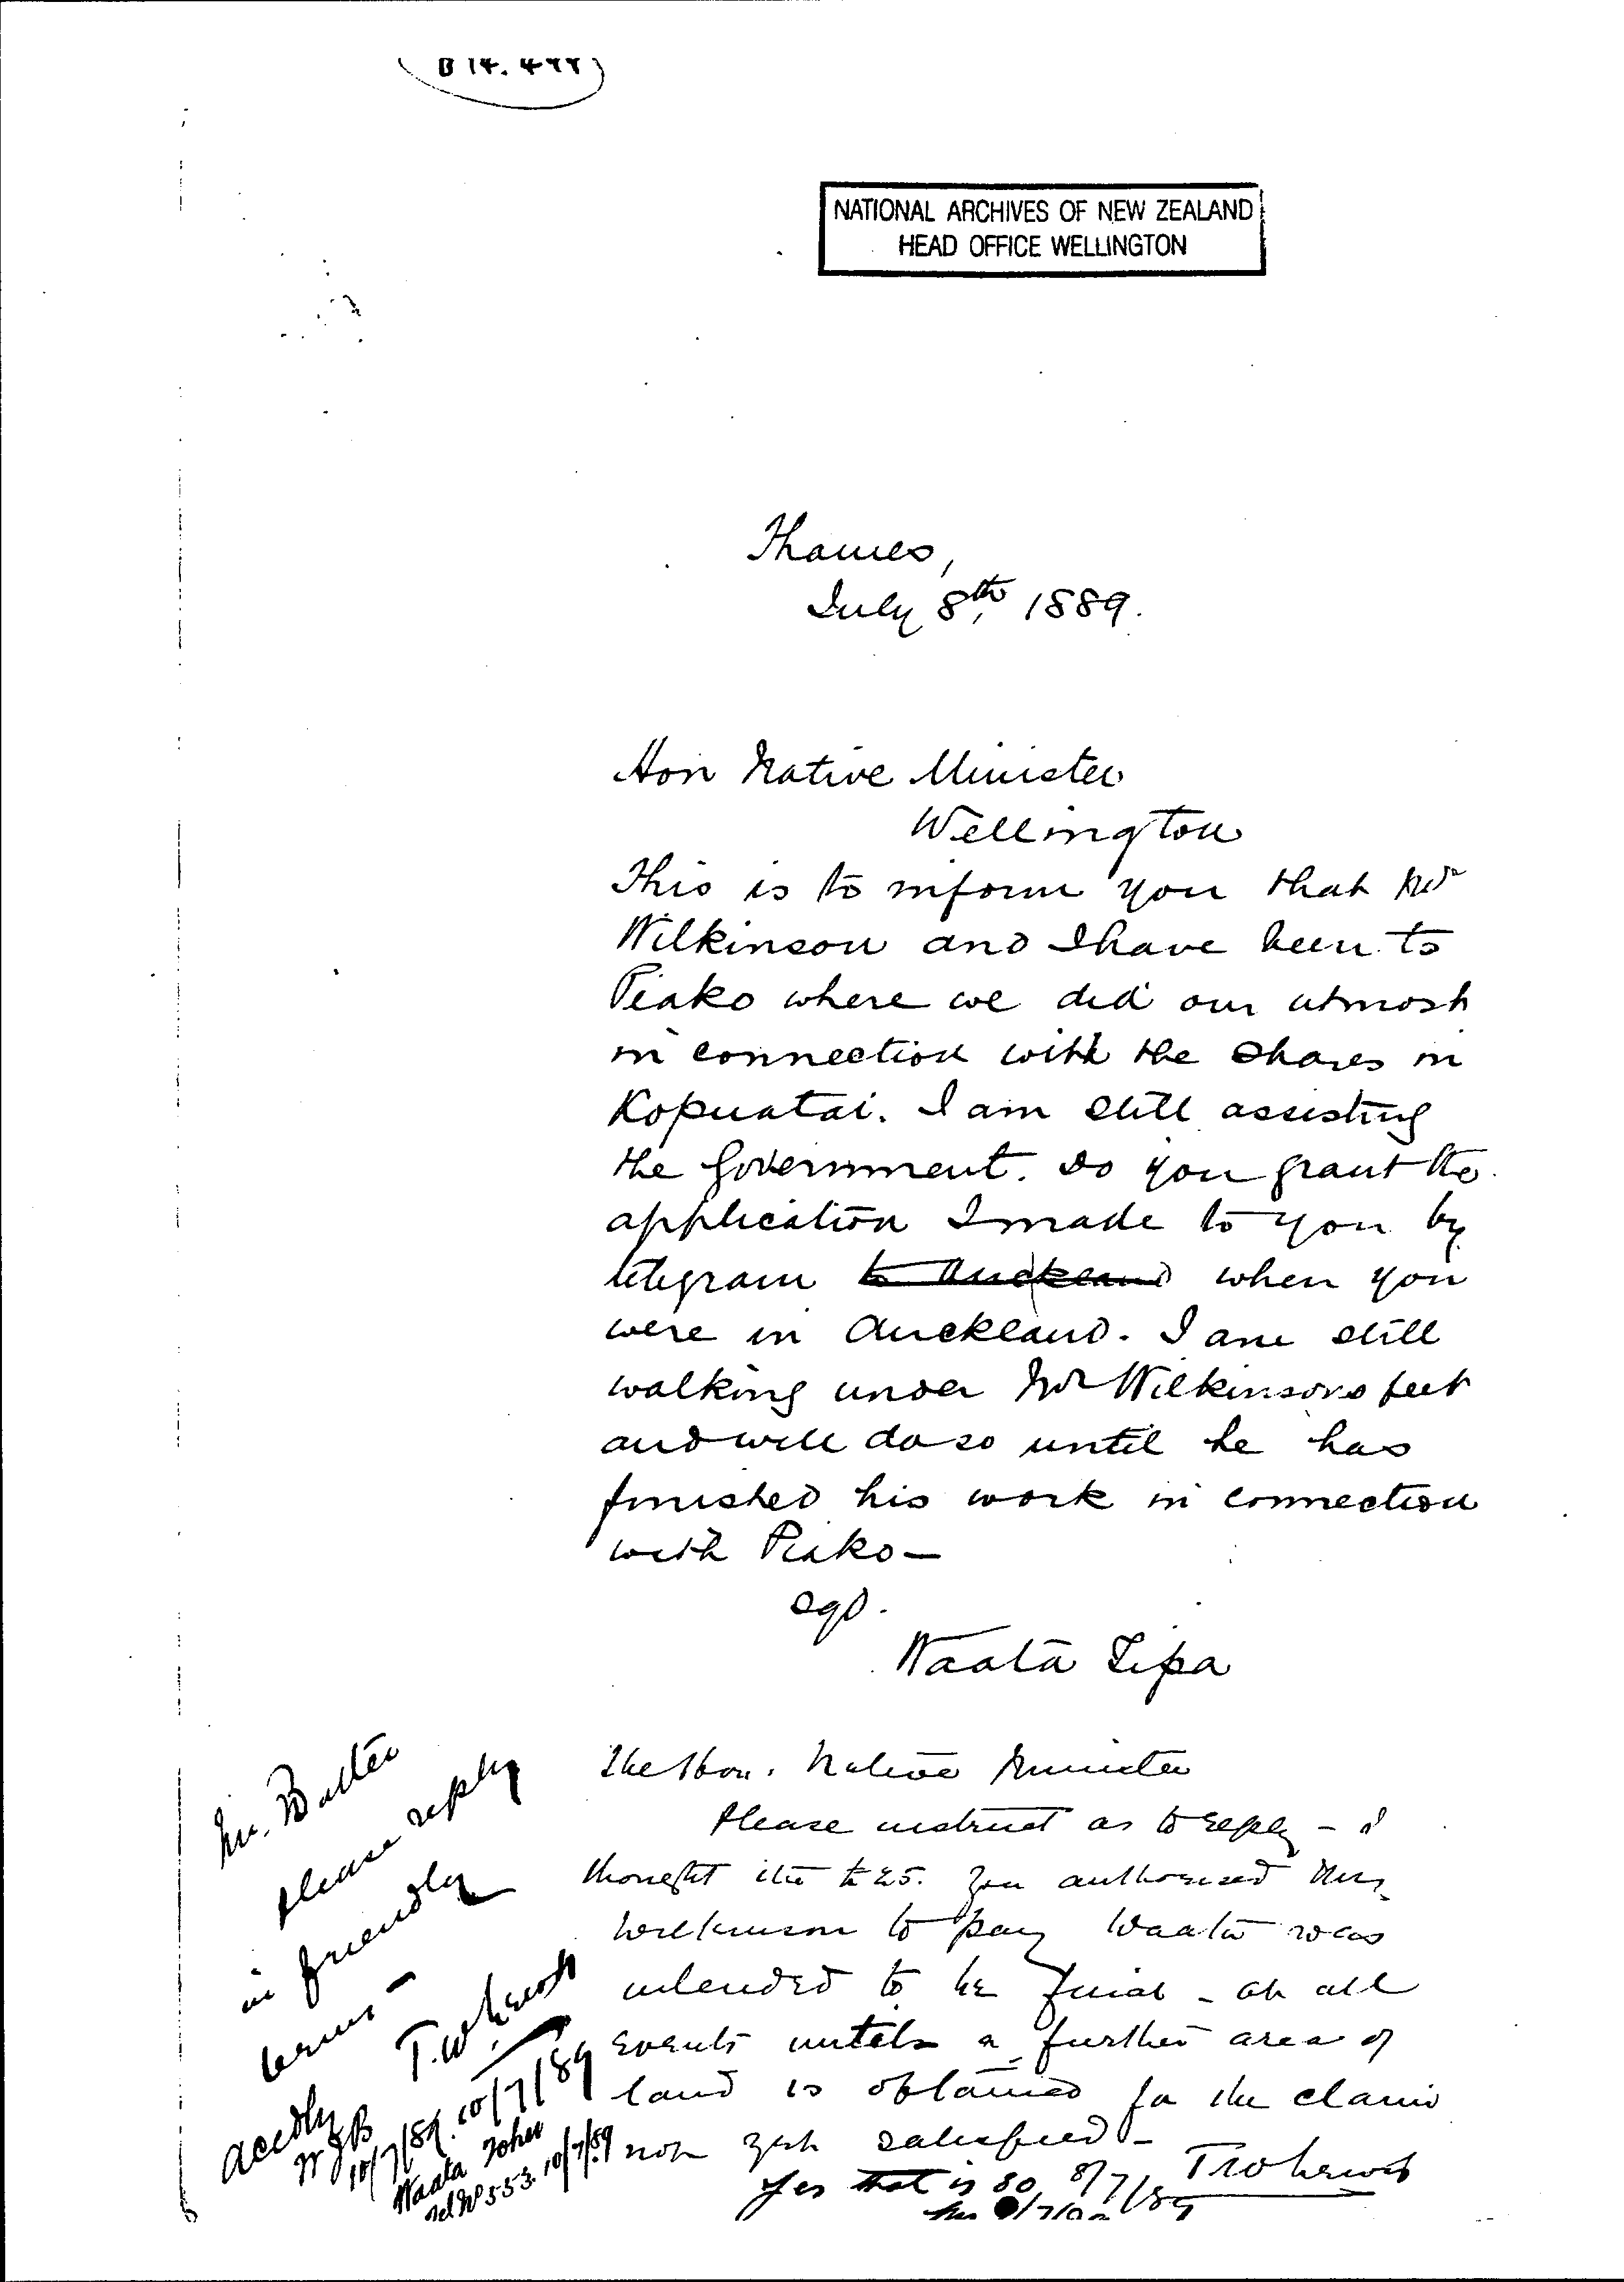 NATIONAL ARCHIVES OF NEW ZEALAND
HEAD OFFICE WELLINGTON
Thames,
July 8th, 1889.
Hon Native Minister
Wellington
This is to inform you that Mr
Wilkinson and I have been to
Piako where we did our utmost
in connection with the shares in
Kopuatai. I am still assisting
the Government. Do you grant the
application I made to you by
telegram to Auckland when you
were in Auckland. I am still
walking under Mr Wilkinsons feet
and will do so until he has
finished his work in connection
with Piako—
sgd.
Waata Tipa
The Hon. Native Minister
Please instruct as to reply - I
thought the £25. you authorised Mr
Wilkinson to pay Waata was
intended to be final - at all
events until a further area of
land is obtained for the claim
not yet satisfied -
T W Lewis
8/7/89
Yes that is so
Mr. Butler
please reply
in friendly
terms -
T.W. Lewis
10/7/89
accdly
WJB
10/7/89.
Waata
Tel No 553. 10/7/89